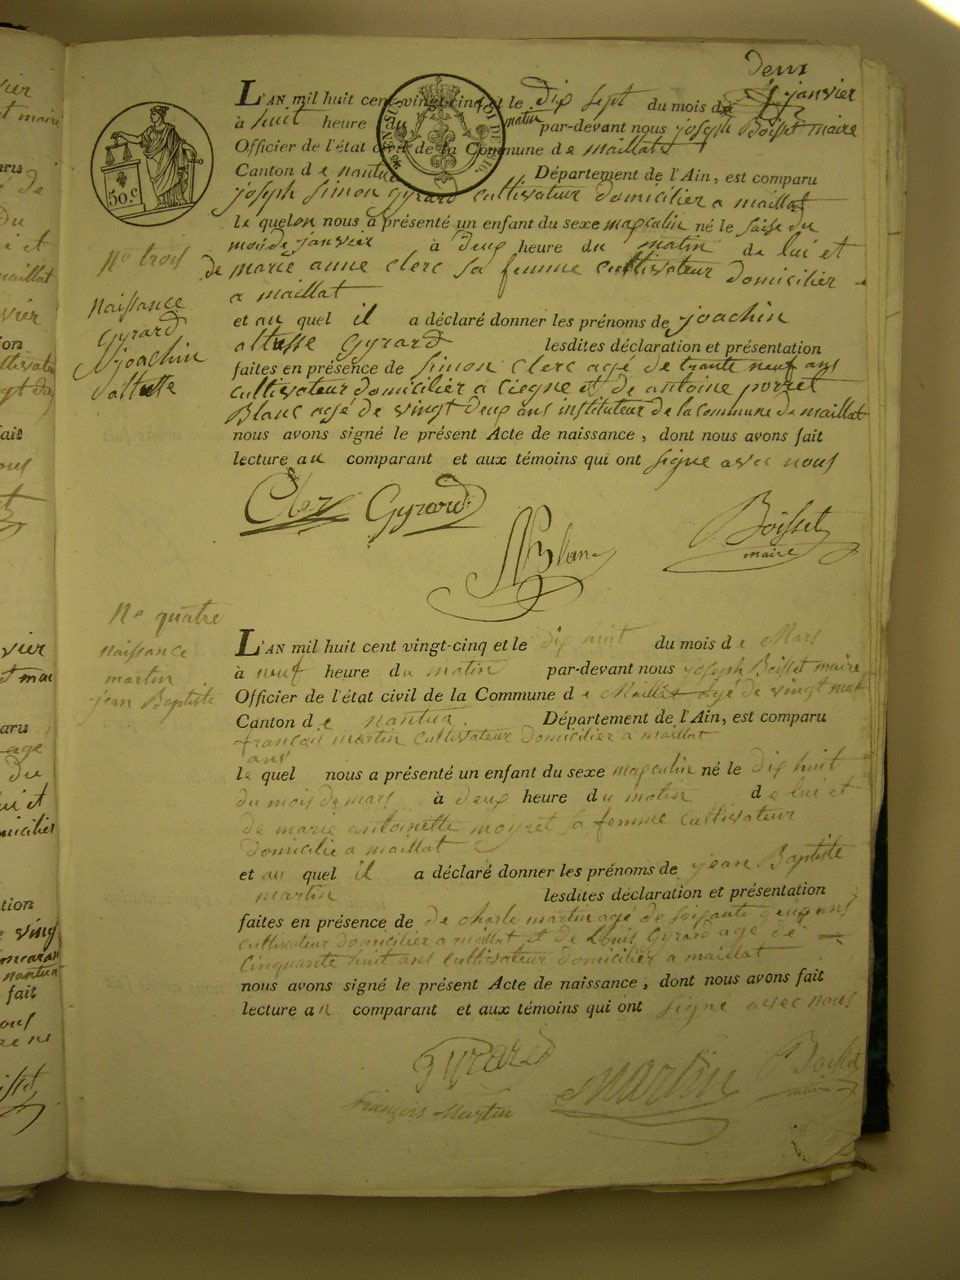 deux
L'AN mil huit cent vingt-cinq et le dix sept du mois de janvier
à huit heure du matin par-devant nous joseph Boisset maire
Officier de l'état civil de la Commune de maillat
Canton de nantua Département de l'Ain, est comparu
joseph simon gyrard cultivateur domicilier a maillat
le quel nous a présenté un enfant du sexe masculin né le saise du
mois de janvier à deux heure du matin de lui et
de marie anne clerc sa femme cultivateur domicilier
a maillat
et au quel il a déclaré donner les prénoms de joachin
gyrard lesdites déclaration et présentation
faites en présence de simon clerc agé de trante neuf ans
cultivateur domicilier a et de antoine
Blanc agé de vingt deux ans instituteur de la commune de maillat
nous avons signé le présent Acte de naissance, dont nous avons fait
lecture au comparant et aux témoins qui ont signe avec nous
No trois
Naissance
Gyrard
joachin
50.c
Gyrard
Blanc
Boisset
maire
No quatre
naissance
martin
jean Baptiste
L'AN mil huit cent vingt-cinq et le dix nuit du mois de Mars
à neuf heure du matin par-devant nous joseph Boisset maire
Officier de l'état civil de la Commune de Maillat agé de vingt neuf
Canton de nantua. Département de l'Ain, est comparu
françois martin cultivateur domicilier a maillat
ans
le quel nous a présenté un enfant du sexe masculin né le dix huit
du mois de mars à deux heure du matin de lui et
de marie antoinette moyret sa femme cultivateur
domicilie a maillat
et au quel il a déclaré donner les prénoms de jean Baptiste
martin lesdites déclaration et présentation
faites en présence de de charle martin agé de soisante ans
cultivateur domicilier a maillat et de Louis Gyrard agé de
cinquante huit ans cultivateur domicilier a maillat
nous avons signé le présent Acte de naissance, dont nous avons fait
lecture au comparant et aux témoins qui ont signe avec nous
gyrard
françois Martin
martin
Boisset
maire